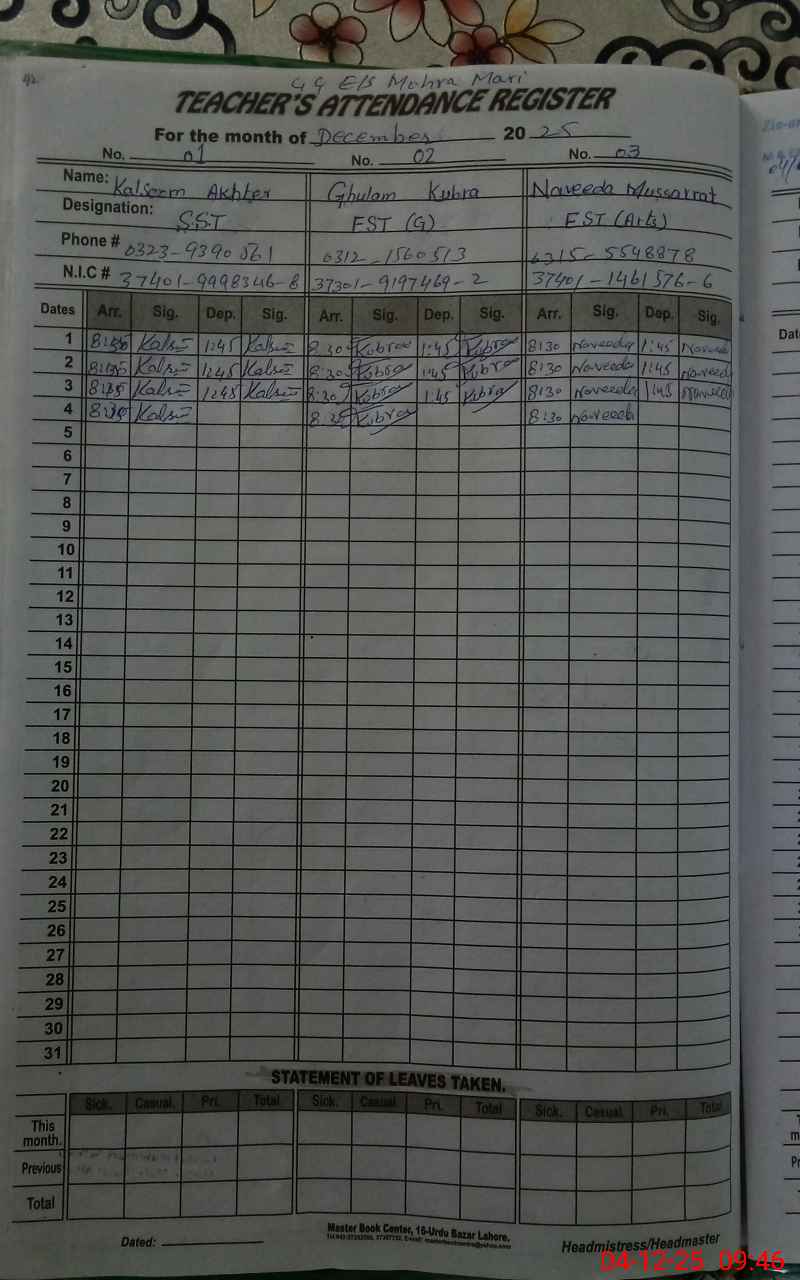 42
G G E/S Mohra Mari
TEACHER'S ATTENDANCE REGISTER
For the month of December 2025
No. 01 No. 02 No. 03
Name: Kalsoom Akhter Ghulam Kubra Naveeda Mussarrat
Designation: SST EST (G) EST (Arts)
Phone # 0323-9390561 0312-1560513 0315-5548878
N.I.C # 37401-9998346-8 37301-9197469-2 37401-1461576-6
Dates Arr. Sig. Dep. Sig. Arr. Sig. Dep. Sig. Arr. Sig. Dep. Sig.
1 1:45 8:30 Kubra 1:45 Kubra 8:30 Naveeda 1:45 Naveeda
2 8:30 Kubra 1:45 Kubra 8:30 Naveeda 1:45 Naveeda
3 8:30 Kubra 1:45 Kubra 8:30 Naveeda 1:45 Naveeda
4 8:30 Kubra 8:30 Naveeda
5
6
7
8
9
10
11
12
13
14
15
16
17
18
19
20
21
22
23
24
25
26
27
28
29
30
31
STATEMENT OF LEAVES TAKEN.
Sick. Casual. Pri. Total Sick. Casual Pri. Total Sick. Casual Pri. Total
This month.
Previous
Total
Master Book Center, 16-Urdu Bazar Lahore.
Dated: Headmistress/Headmaster
04-12-25 09:46